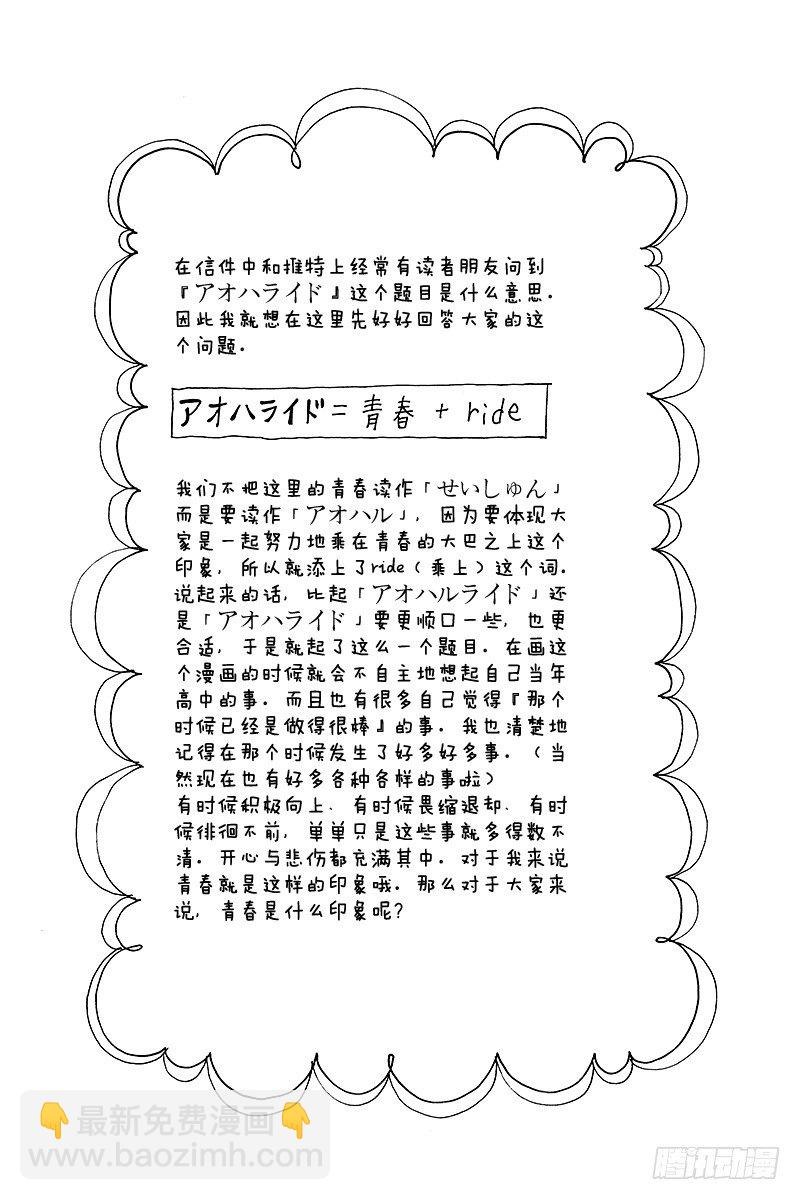 在信件中和推特上经常有读者朋友问到
『アオハライド』这个题目是什么意思.
因此我就想在这里先好好回答大家的这
个问题.
アオハライド=青春 + ride
我们不把这里的青春读作「せいしゅん」
而是要读作「アオハル」, 因为要体现大
家是一起努力地乘在青春的大巴之上这个
印象, 所以就添上了ride(乘上)这个词.
说起来的话, 比起「アオハルライド」还
是「アオハライド」要更顺口一些, 也更
合适, 于是就起了这么一个题目. 在画这
个漫画的时候就会不自主地想起自己当年
高中的事. 而且也有很多自己觉得『那个
时候已经是做得很棒』的事. 我也清楚地
记得在那个时候发生了好多好多事. (当
然现在也有好多各种各样的事啦)
有时候积极向上、有时候畏缩退却、有时
候徘徊不前, 单单只是这些事就多得数不
清. 开心与悲伤都充满其中. 对于我来说
青春就是这样的印象哦. 那么对于大家来
说, 青春是什么印象呢?
👇最新免费漫画👇
www.baozimh.com
腾讯动漫